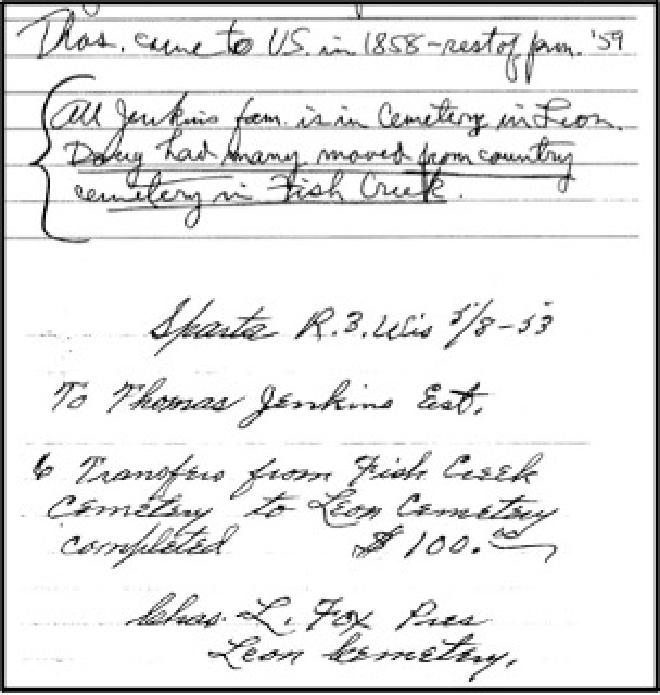 Thos. came to US. in 1858 - rest of fam. '59
All Jenkins fam. is in Cemetery in Leon.
Doug had many moved from country
cemetery in Fish Creek.
Sparta R.3. Wis 5/8-53
To Thomas Jenkins Est.
6 Transfers from Fish Creek
Cemetery to Leon Cemetery
completed $ 100.00
Chas. L. Fox Pres
Leon Cemetery.